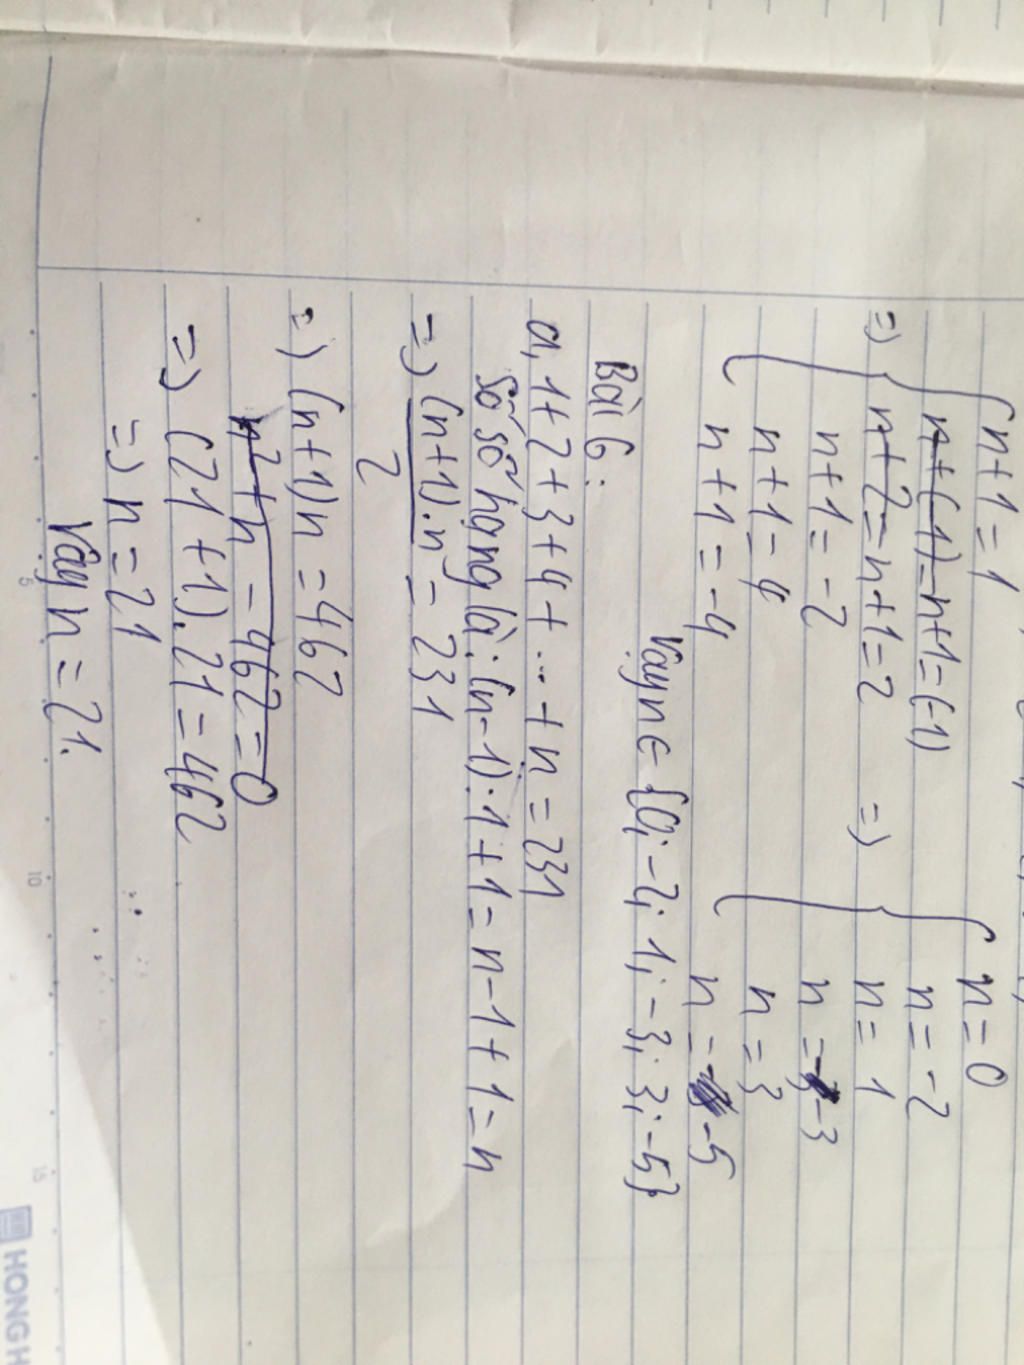 n+1=1 n=0
n+(-1)=n+1=(-1) n=-2
=) n+2=n+1=2 =) n=1
n+1=-2 n=-3
n+1=4 n=3
n+1=-4 n=-5
Vậy n∈{0;-2;1;-3;3;-5}
Bài 6:
a, 1+2+3+4+...+n=231
Số số hạng là: (n-1):1+1=n-1+1=n
=) (n+1).n/2=231
=) (n+1)n=462
n²+n-462=0
=) (21+1).21=462
=) n=21
Vậy n=21.
5 10 15
HONG H